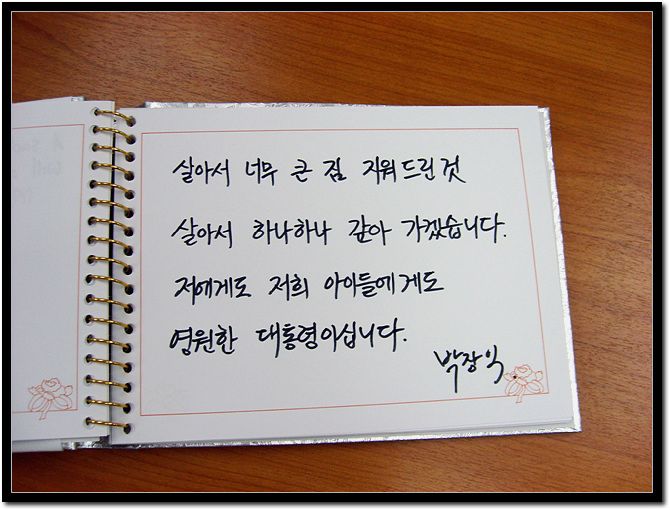 살아서 너무 큰 짐 지워드린것
살아서 하나하나 갚아 가겠습니다.
저에게도 저희 아이들에게도
영원한 대통령이십니다.
박장익